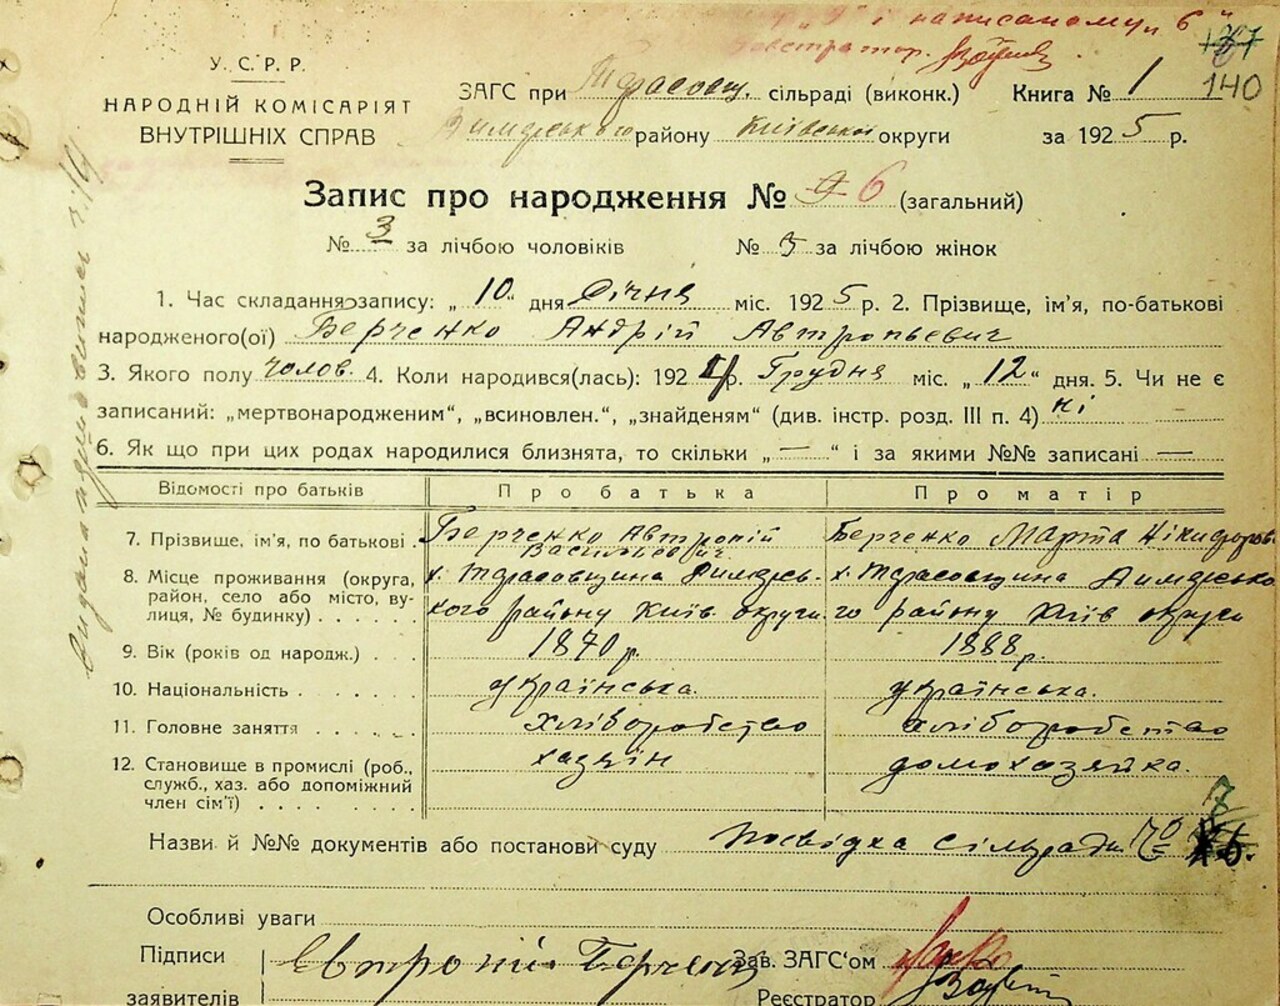 і написаному „6“
Реєстратор.
137
140
У. С. Р. Р.
НАРОДНІЙ КОМІСАРІЯТ
ВНУТРІШНІХ СПРАВ
ЗАГС при Тарасовщ. сільраді (виконк.) Книга № 1
Димерського району Київської округи за 1925 р.
Запис про народження № 9 6 (загальний)
№ 3 за лічбою чоловіків № 3 за лічбою жінок
1. Час складання запису: „10“ дня Січня міс. 1925 р. 2. Прізвище, ім'я, по-батькові
народженого(ої) Берченко Андрій Автропьевич
3. Якого полу чолов. 4. Коли народився(лась): 1924 р. Грудня міс. „12“ дня. 5. Чи не є
записаний: „мертвонародженим“, „всиновлен.“, „знайденям“ (див. інстр. розд. III п. 4) ні
6. Як що при цих родах народилися близнята, то скільки „—“ і за якими №№ записані —
Відомості про батьків Про батька Про матір
7. Прізвище, ім'я, по батькові . Берченко Автропій Васильович Берченко Марта Нікифоров.
8. Місце проживання (округа, х. Тарасовщина Димерсь- х. Тарасовщина Димерсько
район, село або місто, ву-
лиця, № будинку) . . . . . . кого району Київ. округи го району Київ округи
9. Вік (років од народж.) . . . 1870 р. 1888 р.
10. Національність . . . . . . українська. українська.
11. Головне заняття . . . . . хліборобство хліборобство
12. Становище в промислі (роб., хазяїн домохозяйка.
служб., хаз. або допоміжний
член сім'ї) . . . . . . . .
7
Назви й №№ документів або постанови суду Посвідка сільради №
Особливі уваги
Підписи Евтропій Берченко Зав. ЗАГС'ом
заявителів Реєстратор